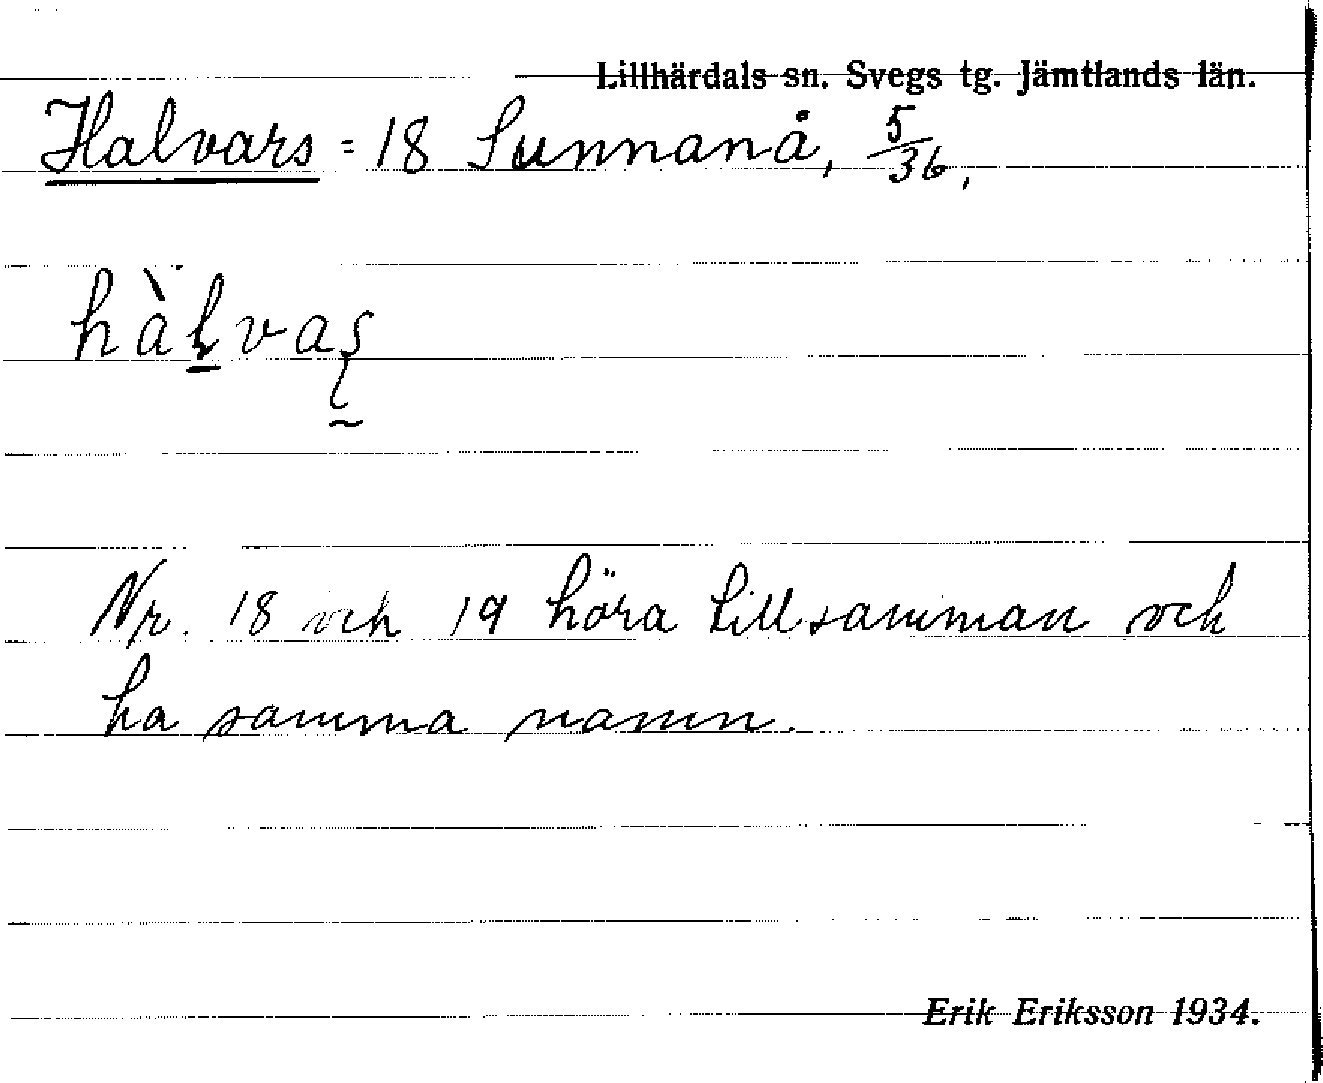 Lillhärdals sn. Svegs tg. Jämtlands län.
Halvars = 18 Sunnanå, 5/36,
hàlvaʂ
Nr. 18 och 19 höra tillsamman och
ha samma namn.
Erik Eriksson 1934.